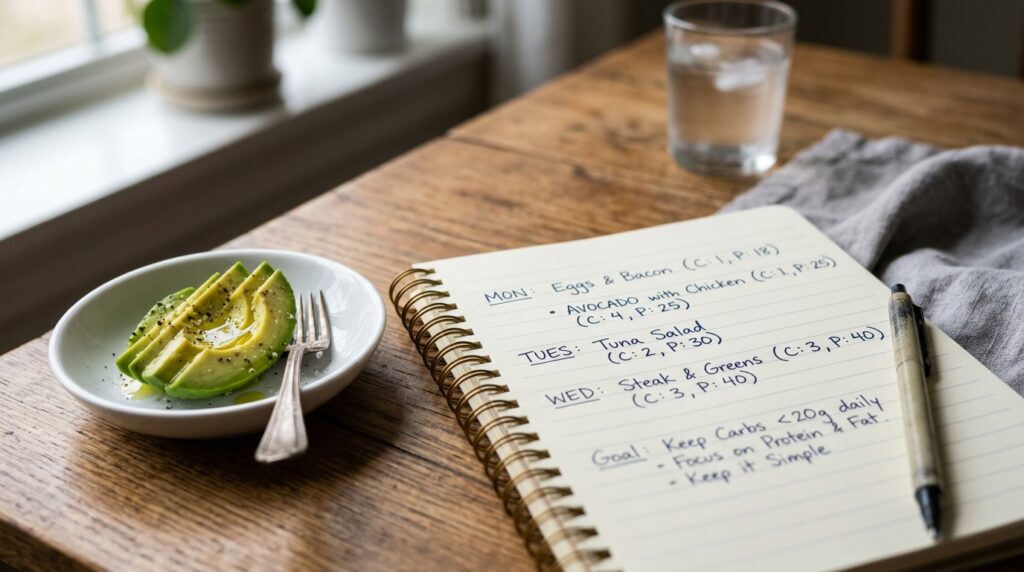 MON: Eggs & Bacon (C: 1, P: 18)
• AVOCADO with Chicken (C: 1, P: 25)
(C: 4, P: 25)
TUES: Tuna Salad
(C: 2, P: 30)
WED: Steak & Greens (C: 3, P: 40)
(C: 3, P: 40)
Goal: Keep Carbs <20g daily
• Focus on Protein & Fat.
• Keep it Simple